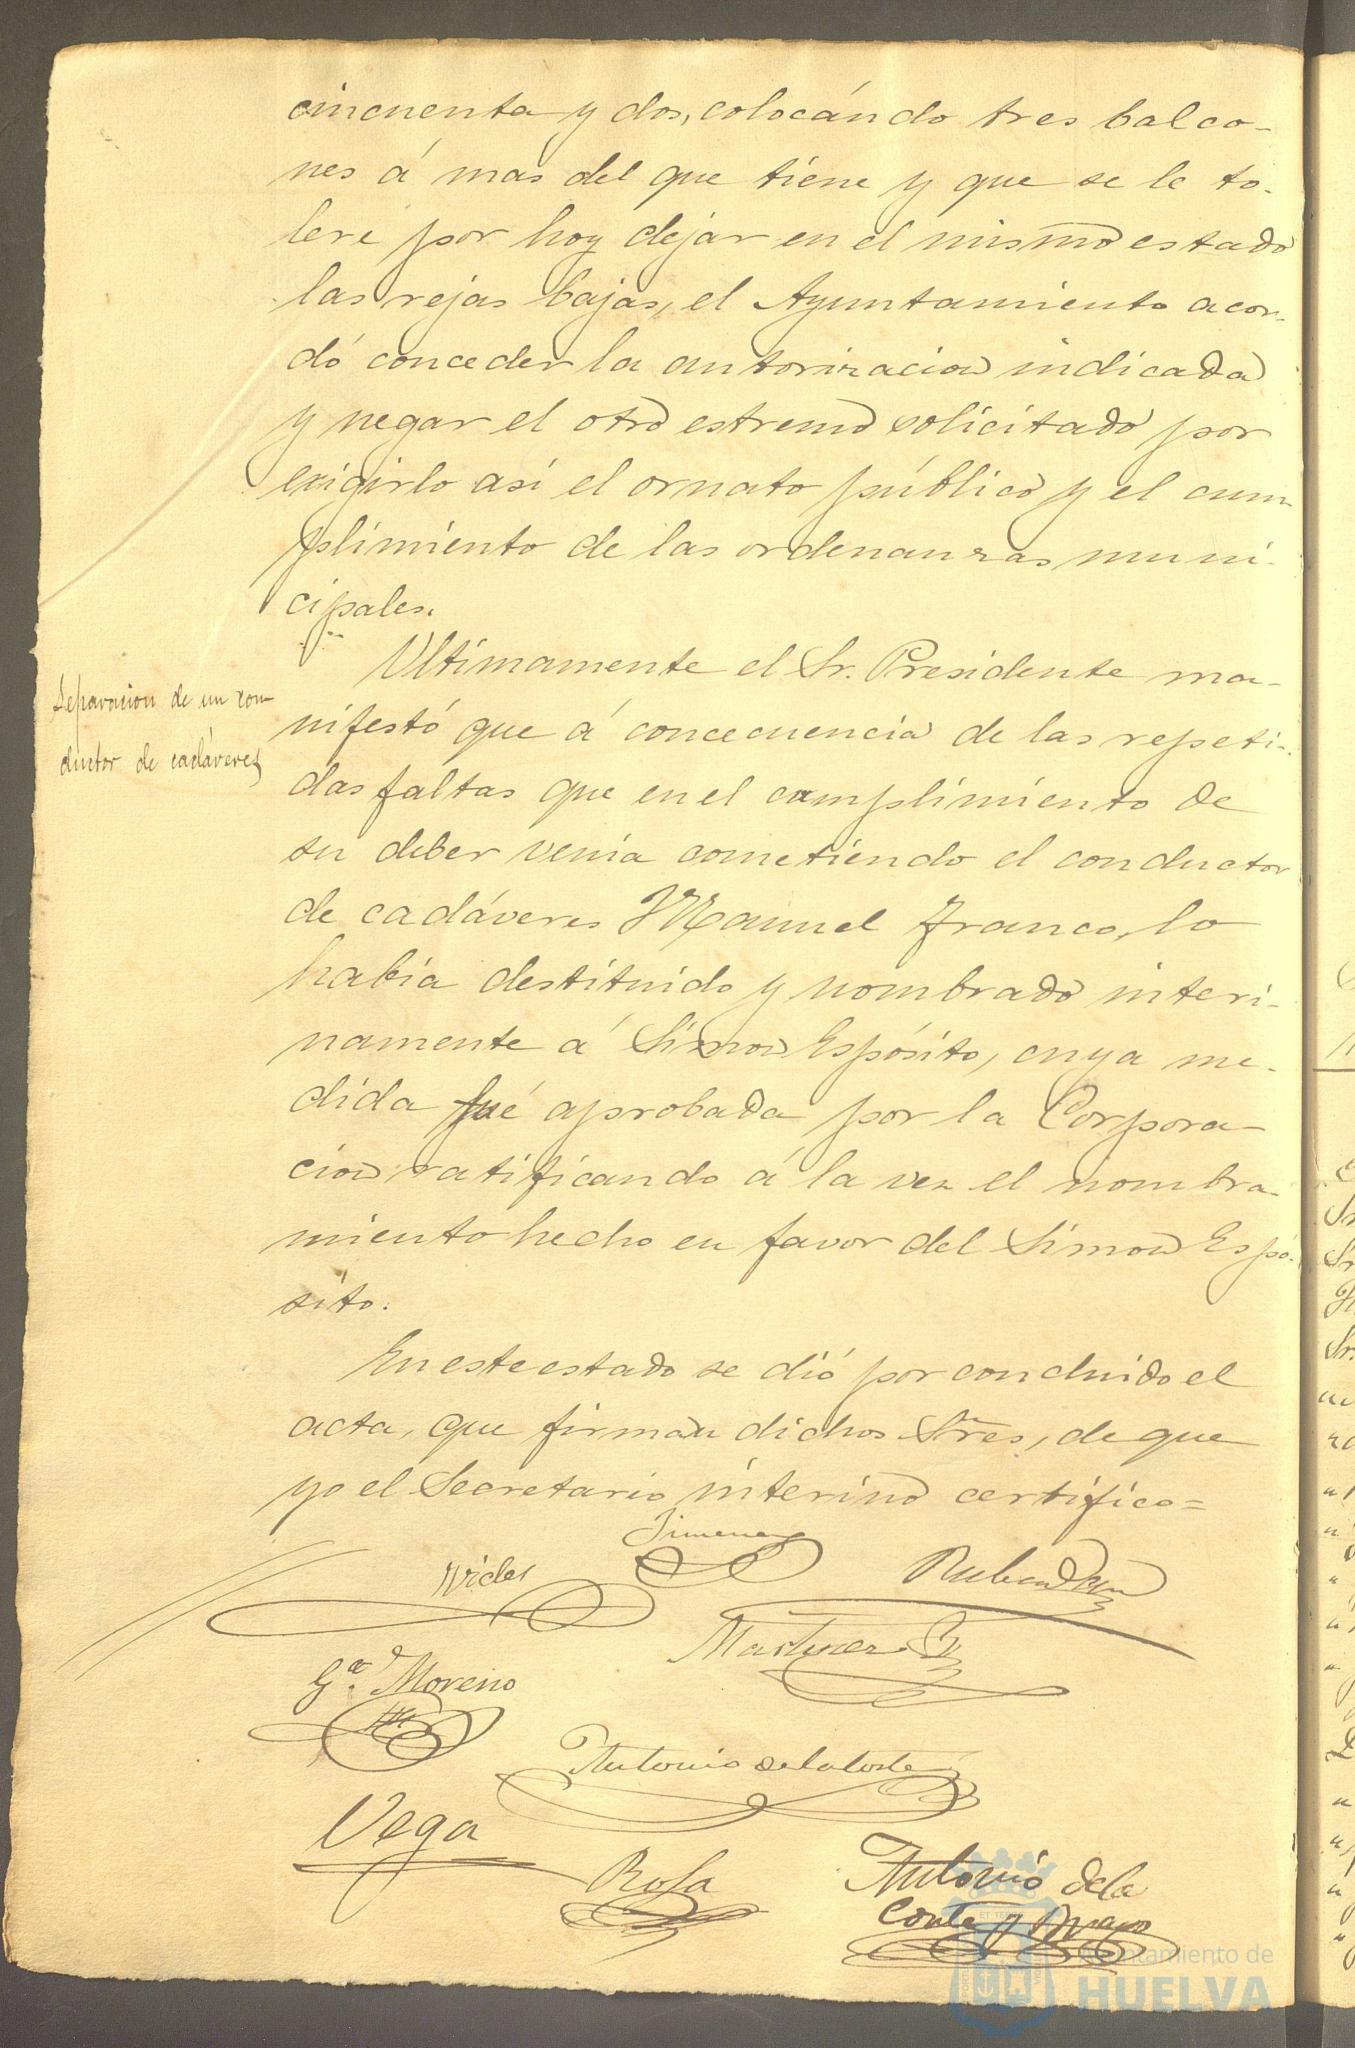 cincuenta y dos, colocándo tres balco-
nes á mas del que tiene y que se le to-
lere por hoy dejar en el mismo estado
las rejas bajas, el Ayuntamiento acor-
dó conceder la autorizacion indicada
y negar el otro estremo solicitado por
exigirlo así el ornato público y el cum-
plimiento de las ordenanzas muni-
cipales.
Separacion de un con-
ductor de cadáveres
Ultimamente el Sr. Presidente ma-
nifestó que á concecuencia de las repeti-
das faltas que en el cumplimiento de
su deber venia cometiendo el conductor
de cadáveres Manuel Franco, lo
habia destituido y nombrado interi-
namente á Simon Espósito, cuya me-
dida fué aprobada por la Corpora-
cion ratificando á la vez el nombra-
miento hecho en favor del Simon Espó-
sito.
En este estado se dió por concluido el
acta, que firman dichos Sres, de que
yo el Secretario interino certifico=
Jimenez
Martinez
Gª. Moreno
Antonio de la Corte
Vega
Rosa
Antonio de la
Corte y Mayo
Ayuntamiento de
HUELVA